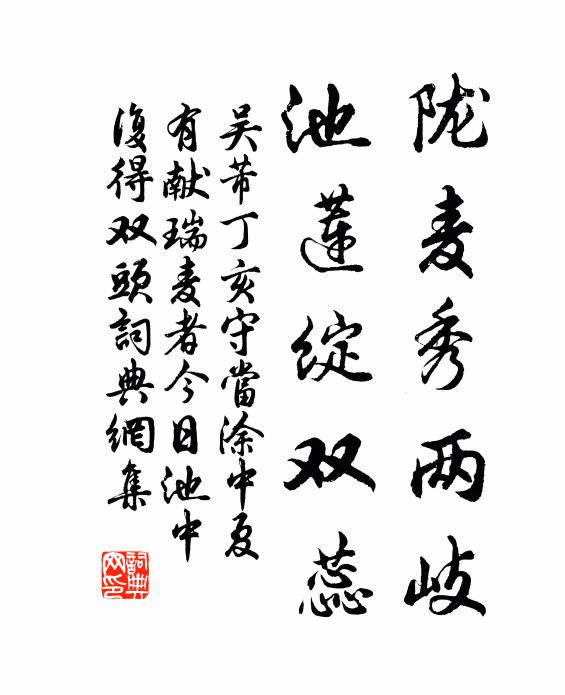 陇麦秀两岐
池莲绽双蕊
吴芾丁亥守當涂中夏
有献瑞麦者今日池中
復得双頭詞典網集
詞典网印